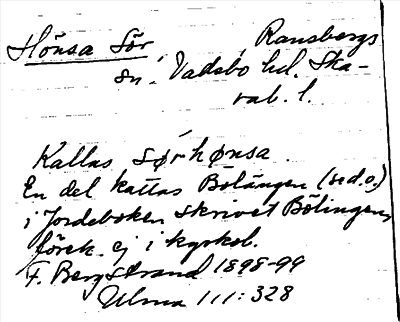 Hönsa Sör, Ransbergs
sn. Vadsbo hd. Ska-
rab. l.
Kallas Sørhønsa
En del kallas Bölängen (se d.o.)
i Jordeboken skrivet Bölingen,
förek. ej i kyrkob.
F. Bergstrand 1898-99
Ulma 111:328